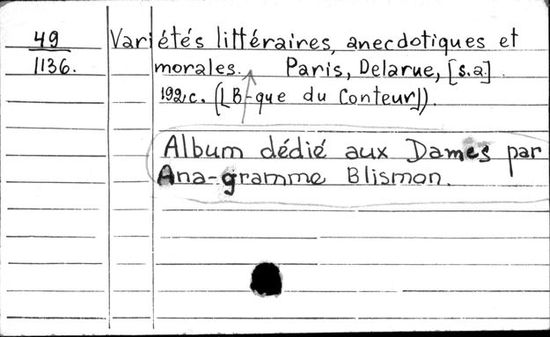 49 Variétés littéraires, anecdotiques et
1136. morales. Paris, Delarue, [s.a]
192c. ([B-que du Conteur]).
Album dédié aux Dames par
Ana-gramme Blismon.